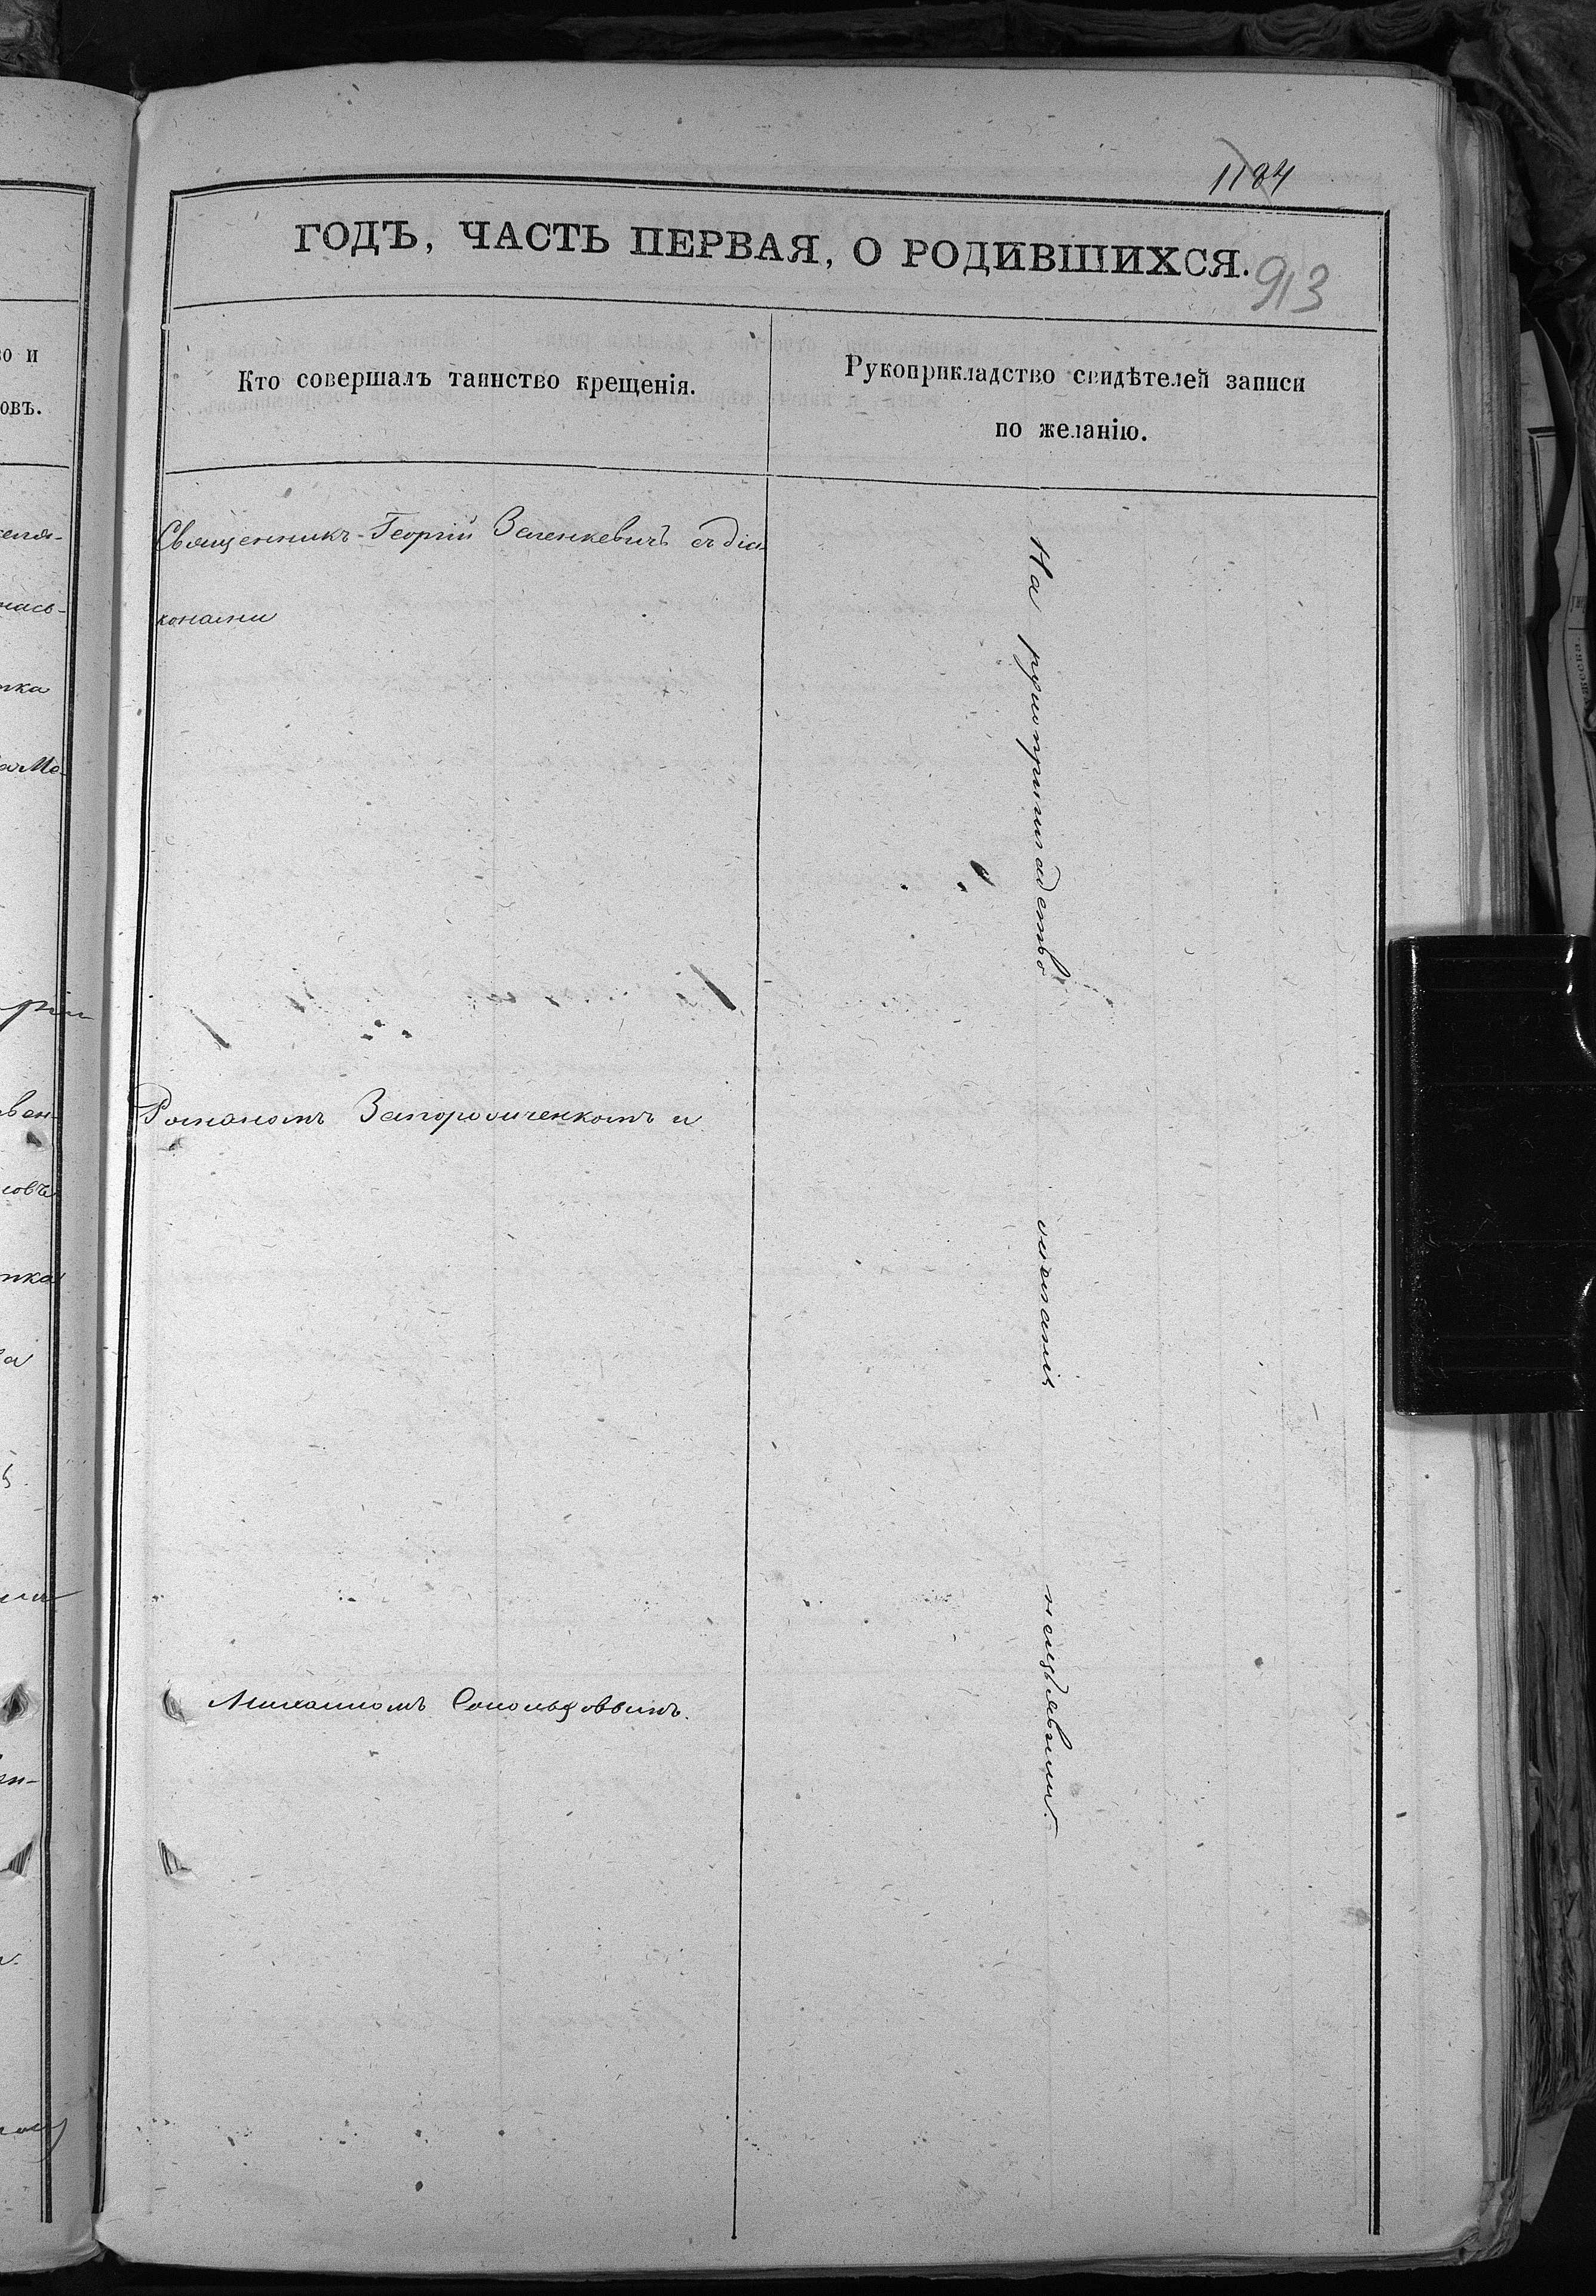 1184
ГОДЪ, ЧАСТЬ ПЕРВАЯ, О РОДИВШИХСЯ.
913
Кто совершалъ таинство крещенія.
Рукоприкладство свидѣтелей записи
по желанію.
Священникъ Георгій Зеленкевичъ съ діа
конами
Романомъ Запорожченкомъ и
Михаиломъ
На рукоприкладство
желанія
неизъявили.
о и
овъ.